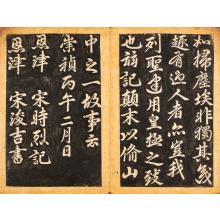 如掃塵埃非獨其箋
趣有過人者亦豈我
列聖建用皇極之致
也猶記顛末以備山
中之一故事云
崇禎丙午二月日
恩津 宋時烈記
恩津 宋浚吉書